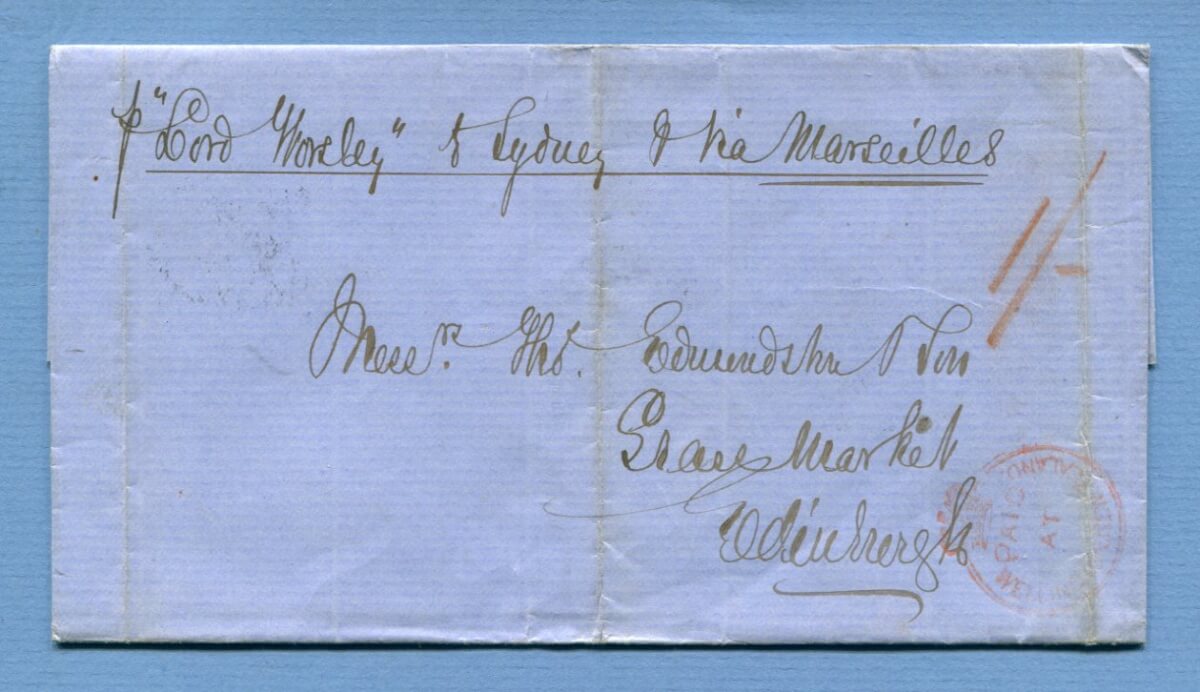 p "Lord Worsley" to Sydney & via Marseilles
1/-
Messrs. Thos. Edmundston & Son
Grass Market
Edinburgh
PAID
AT